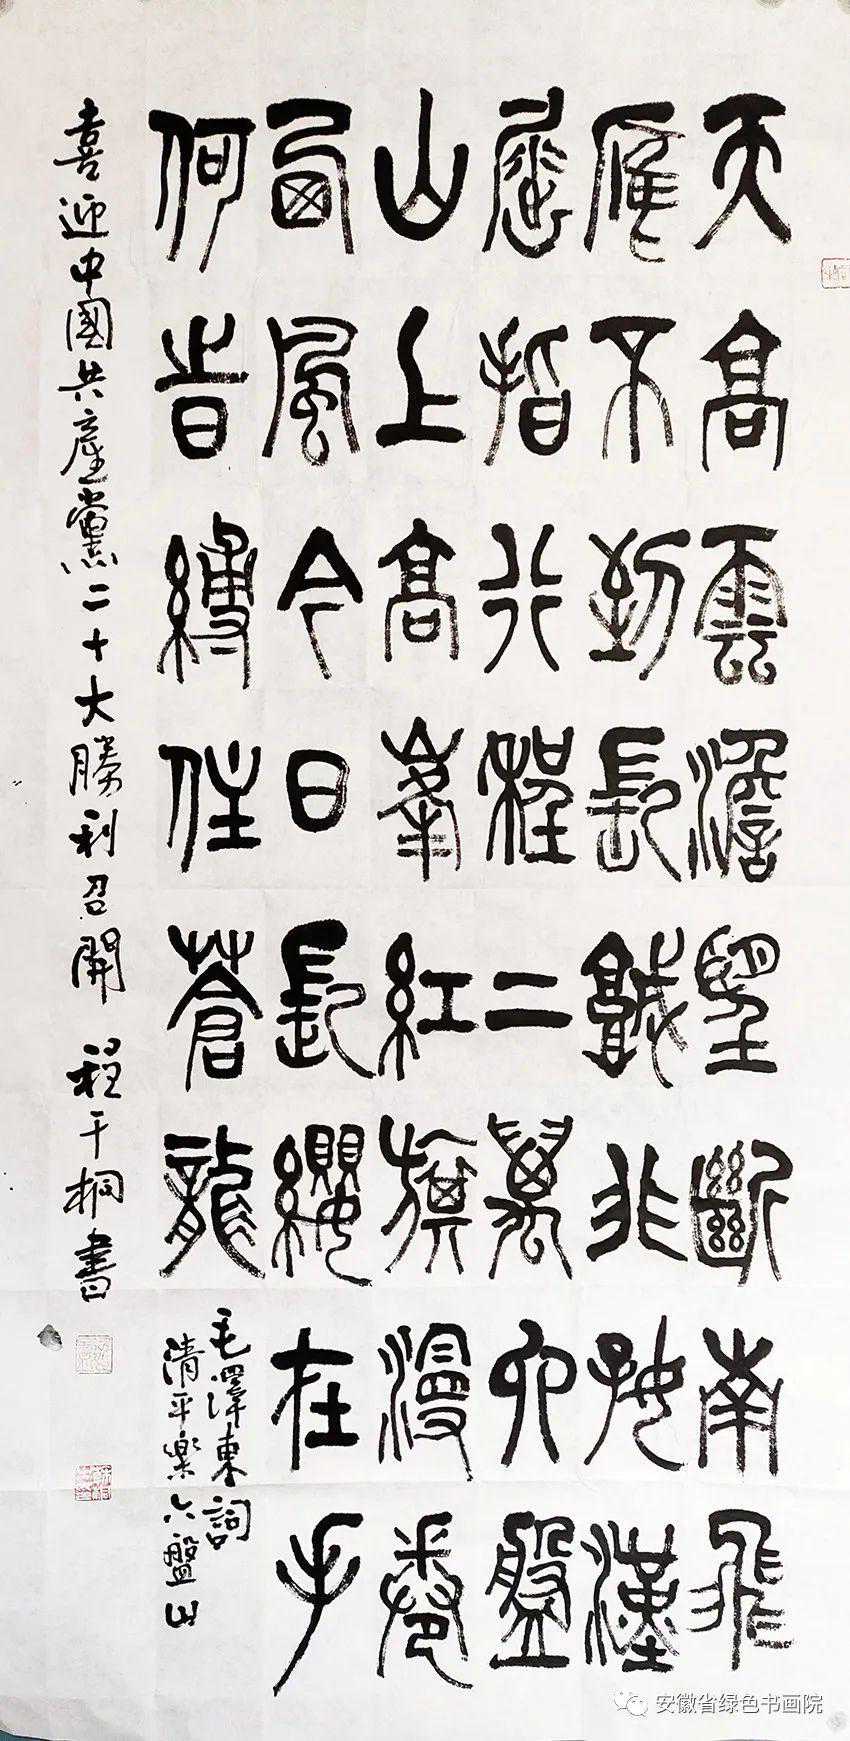 天高雲澹望斷南飛
雁不到長城非好漢
屈指行程二萬六盤
山上高峯紅旗漫卷
西風今日長纓在手
何旹縛住蒼龍
毛澤東詞
清平樂六盤山
喜迎中國共產黨二十大勝利召開 程桐書
安徽省绿色书画院